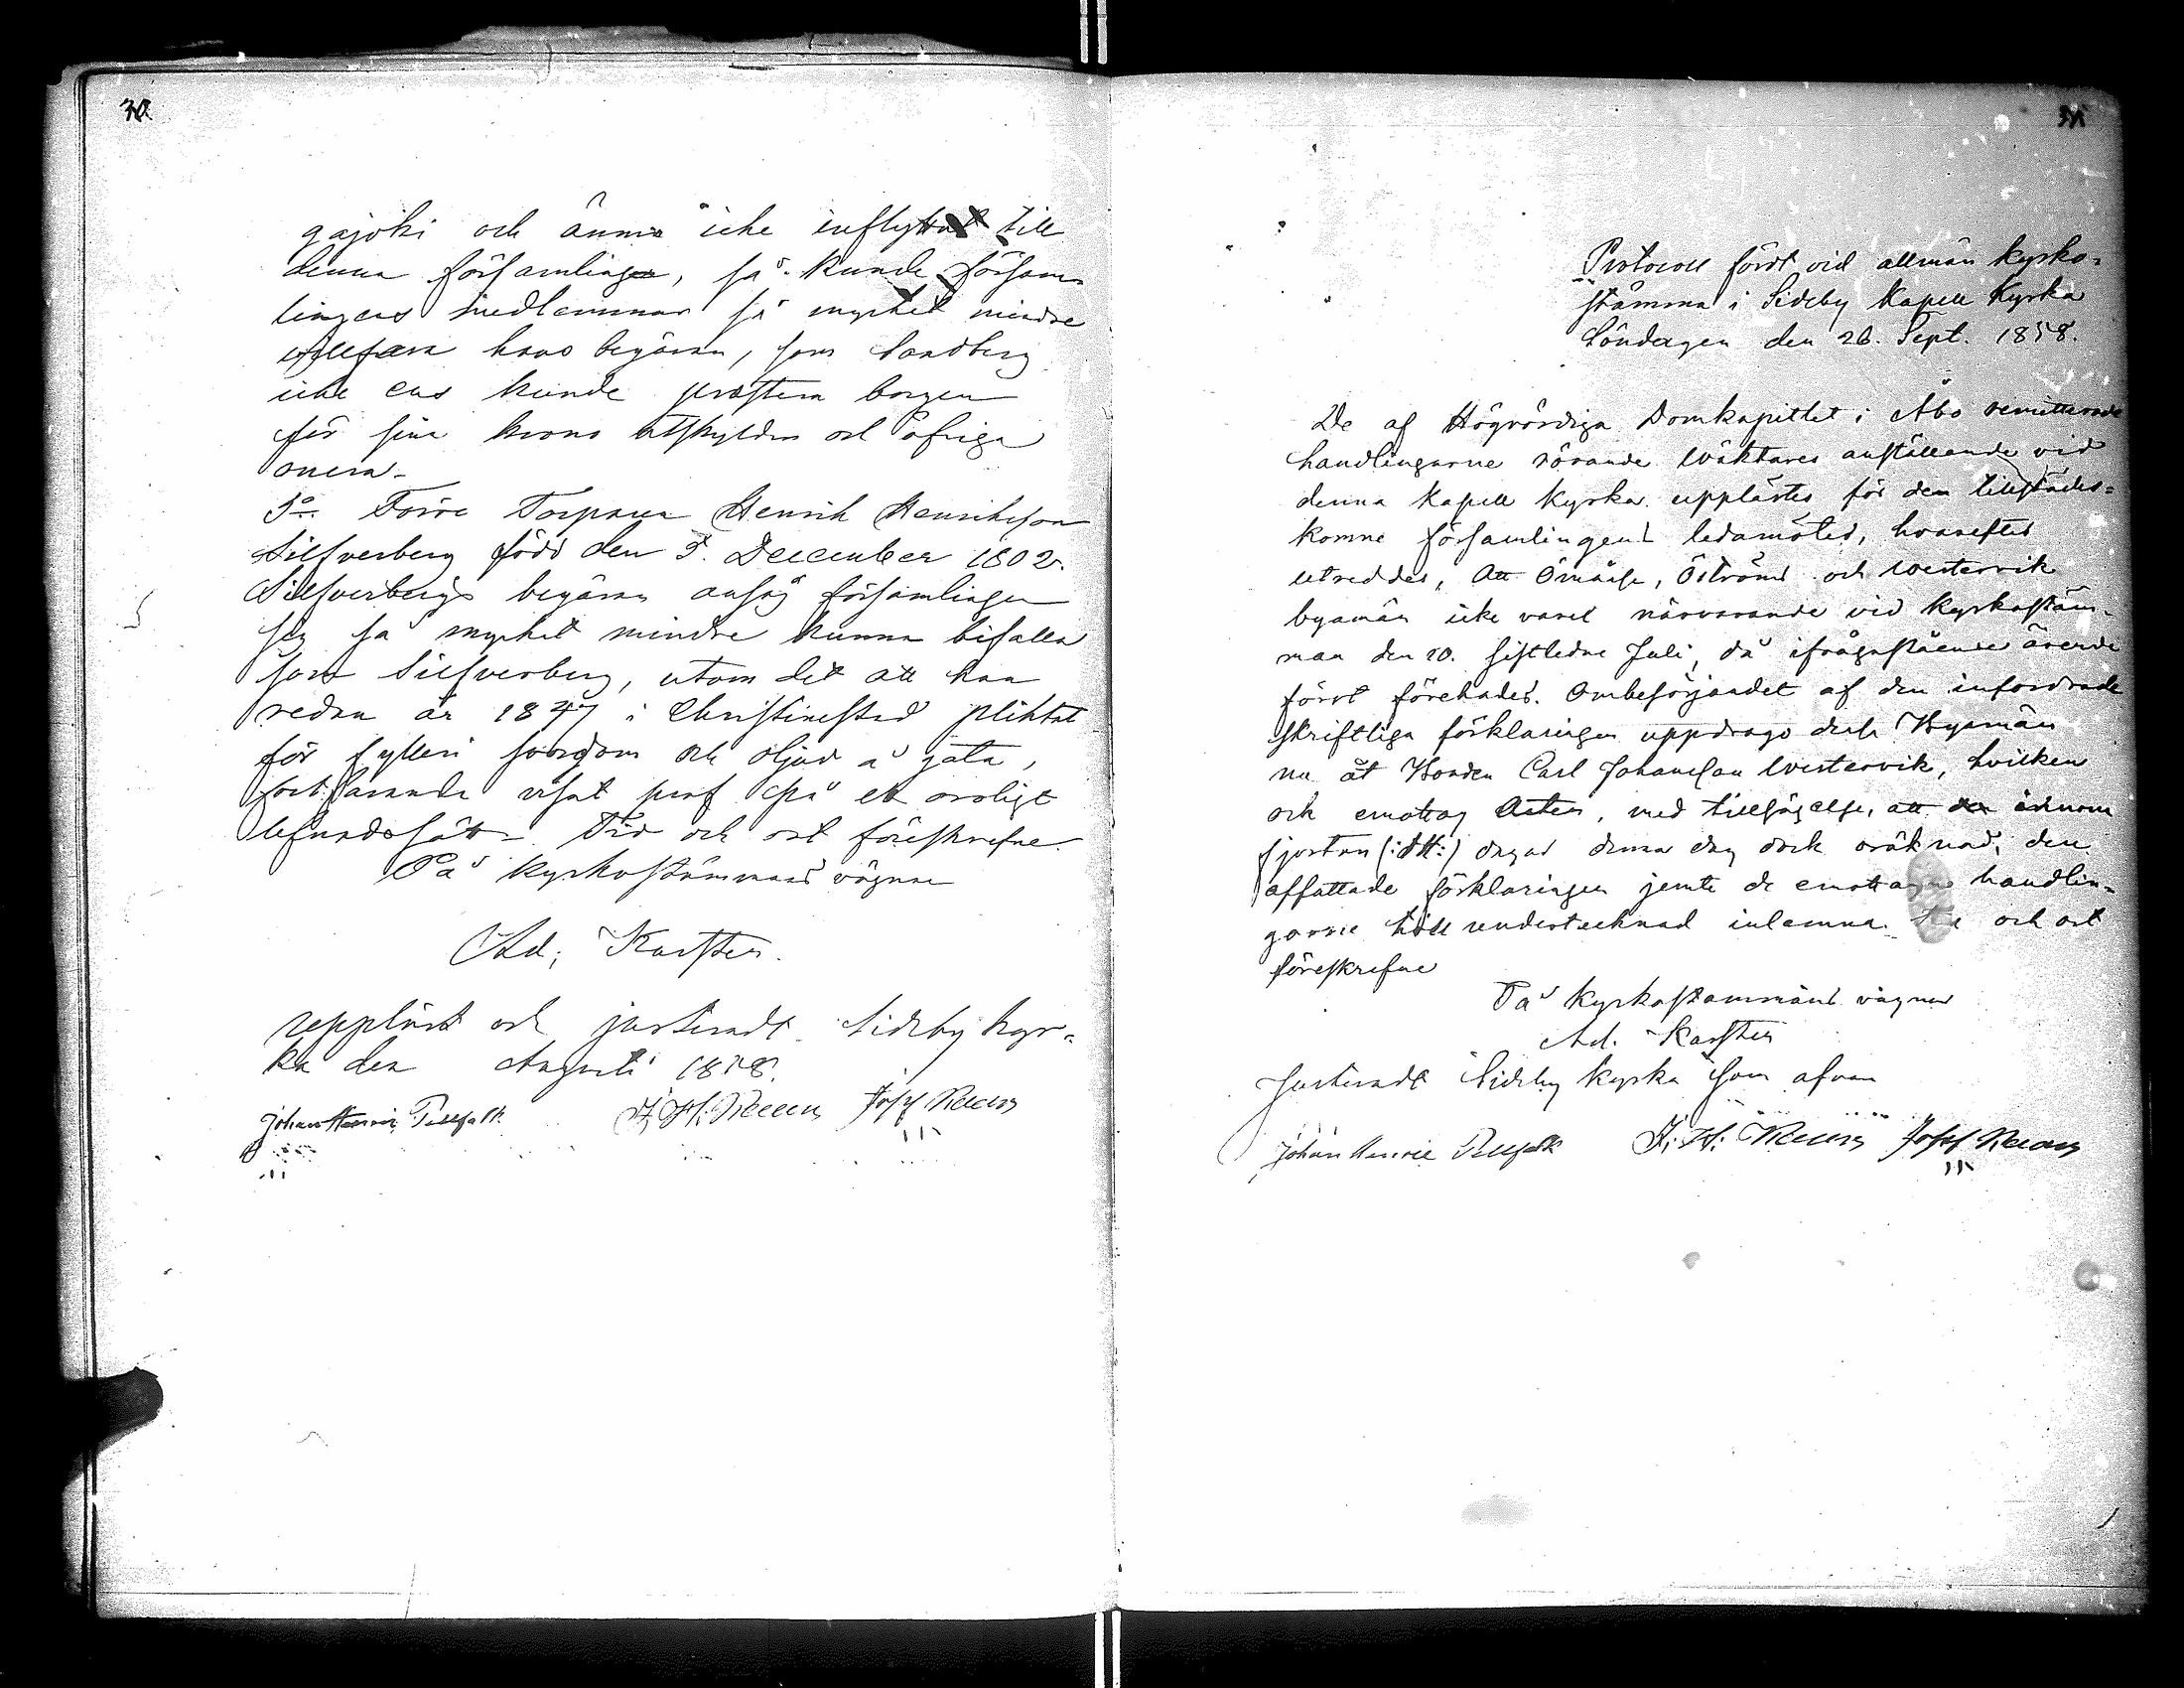 30.
gajoki och ännu icke inflyttat till
denna församlingen, så kunde försam-
lingens medlemmar så mycket mindre
villfara hans begäran, som Sandberg
icke ens kunde prästera borgen
för sina krono utskylder och öfriga
onera.
5o Förre Torparen Henrik Henriksson
Silfverberg född den 5. December 1802.
Silfverbergs begäran ansåg församlingen
sig så mycket mindre kunna bifalla
som Silfverberg, utom det att han
redan år 1847 i Christinestad pliktat
för fylleri svordom och oljud å gata,
fortfarande visat prof på ett oroligt
lefnadssätt. Tid och ort föreskrefne.
På kyrkostämmans vägnar
Ad. Karsten.
Uppläst och justeradt Sideby kyr-
ka den Augusti 1858.
Johan Henric Pellfalk J. H. Reuus Josef Reuus
31
Protocoll fördt vid allmän kyrko-
stämma i Sideby Kapell Kyrka
Söndagen den 26. Sept. 1858.
De af Högvördiga Domkapitlet i Åbo remitterade
handlingarne rörande wäktares anställande vid
denna Kapell Kyrka upplästes för den tillstädes-
komne församlingens ledamöter, hvarefter
utreddes, att Ömåssa, Öströms och Westervik
byamän icke varit närvarande vid Kyrkostäm-
man den 10. sistledne Juli, då ifrågastående ärende
först förehades. Ombesörjandet af den infordrade
skriftliga förklaringen uppdrogo dessa Byamän
nu åt Bonden Carl Johansson Westervik, hvilken
och emottog Acten, med tillsägelse, att inom
fjorton (:14:) dagar denna dag dock oräknad, den
affattade förklaringen jemte de emottagne handlin-
garne till undertecknad inlemna. och ort
föreskrefne
På kyrkostämmans vägnar
Ad. Karsten
Justeradt Sideby kyrka som ofvan
Johan Henric Pellfalk J. H. Reuus Josef Reuus